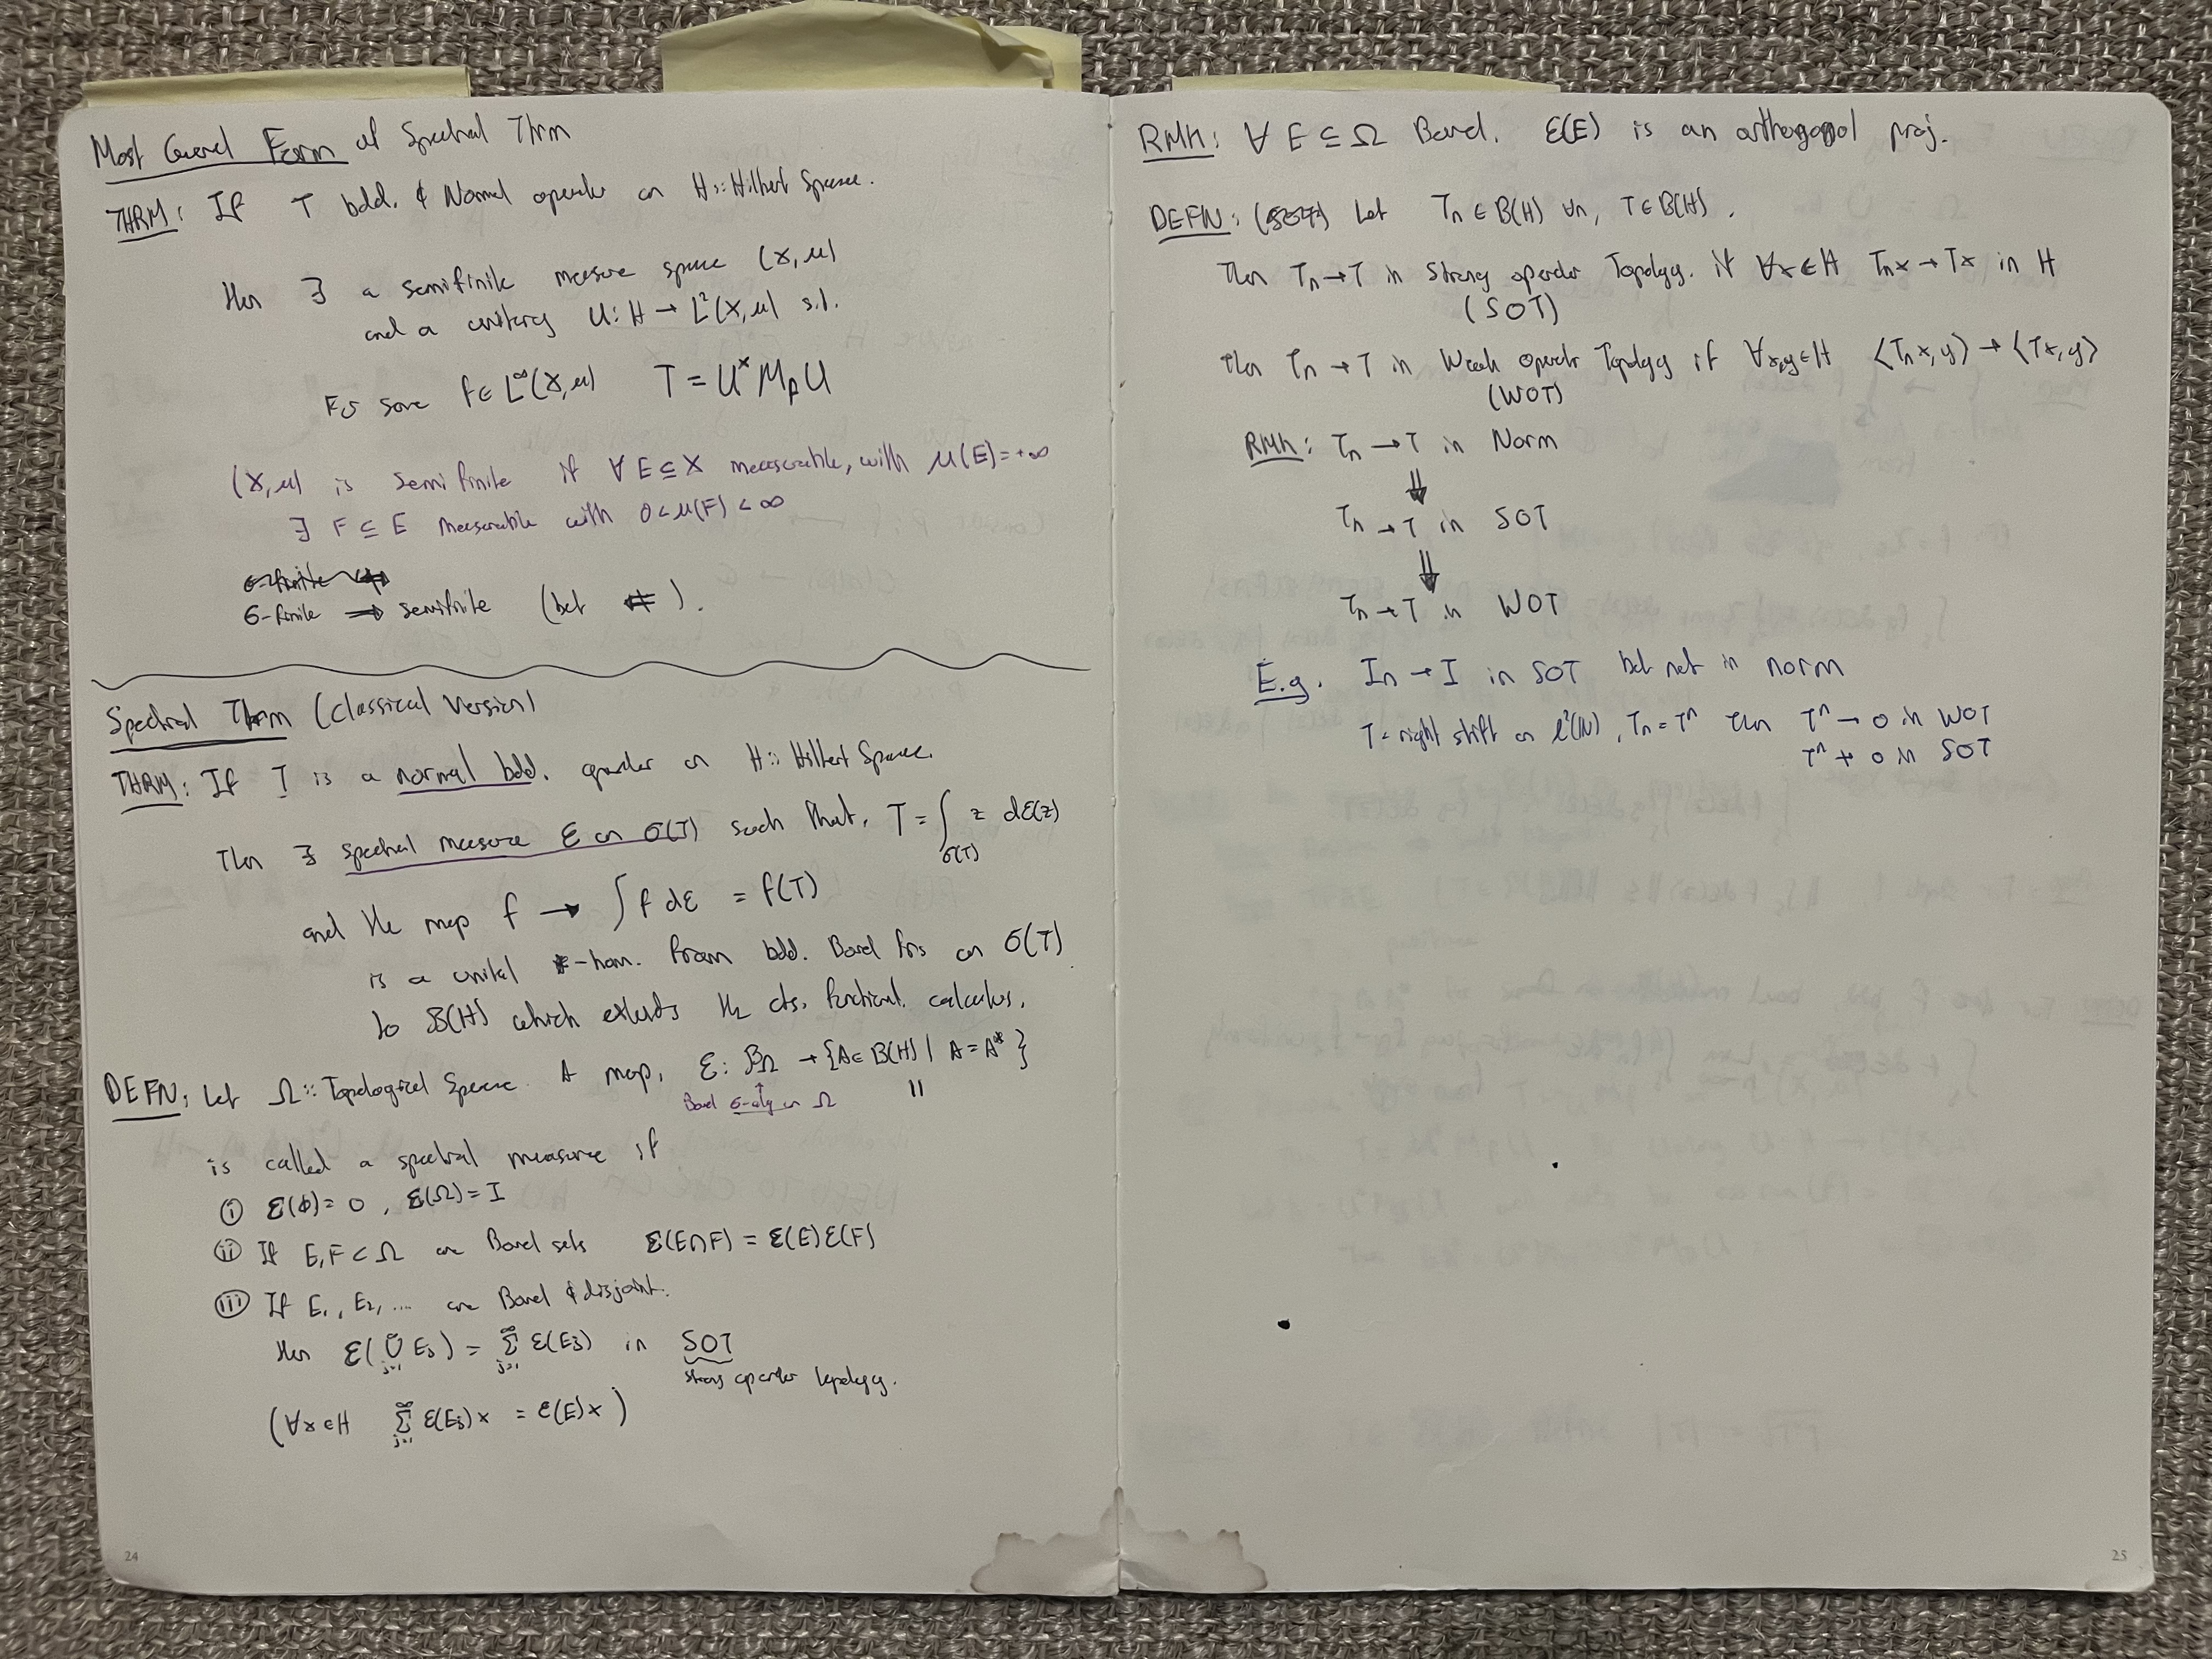 Most General Form of Spectral Thrm
THRM: If T bdd. & Normal operator on H:: Hilbert Space.
then ∃ a semifinite measure space (X,μ)
and a unitary U: H → L²(X,μ) s.t.
For some f ∈ L^∞(X,μ) T = U* M_f U
(X,μ) is semi finite if ∀ E ⊆ X measurable, with μ(E)=+∞
∃ F ⊆ E measurable with 0<μ(F)<∞
σ-finite
σ-finite → semifinite (but ⇍).
Spectral Thrm (Classical Version)
THRM: If T is a normal bdd. operator on H:: Hilbert Space.
Then ∃ spectral measure ℰ on σ(T) such that, T = ∫_σ(T) z dℰ(z)
and the map f → ∫ f dℰ = f(T)
is a unital *-hom. from bdd. Borel fns on σ(T)
to B(H) which extends the cts. functional calculus.
DEFN: Let Ω:: Topological Space. A map, ℰ: B_Ω → {A ∈ B(H) | A = A* }
Borel σ-alg on Ω "
is called a spectral measure if
(i) ℰ(∅) = 0, ℰ(Ω) = I
(ii) If E, F ⊂ Ω are Borel sets ℰ(E∩F) = ℰ(E)ℰ(F)
(iii) If E₁, E₂, ... are Borel & disjoint.
then ℰ(⋃_{j=1}^∞ E_j) = Σ_{j=1}^∞ ℰ(E_j) in SOT
strong operator topology.
(∀x∈H Σ_{j=1}^∞ ℰ(E_j)x = ℰ(E)x)
24
RMK: ∀ E ⊆ Ω Borel. ℰ(E) is an orthogonal proj.
DEFN: Let T_n ∈ B(H) ∀n, T ∈ B(H).
Then T_n → T in Strong operator Topology. if ∀x∈H T_n x → Tx in H
(SOT)
then T_n → T in Weak operator Topology if ∀x,y∈H ⟨T_n x, y⟩ → ⟨Tx, y⟩
(WOT)
RMK: T_n → T in Norm
⇓
T_n → T in SOT
⇓
T_n → T in WOT
E.g. I_n → I in SOT but not in norm
T = right shift on ℓ²(ℕ), T_n = Tⁿ then Tⁿ → 0 in WOT
Tⁿ ↛ 0 in SOT
25